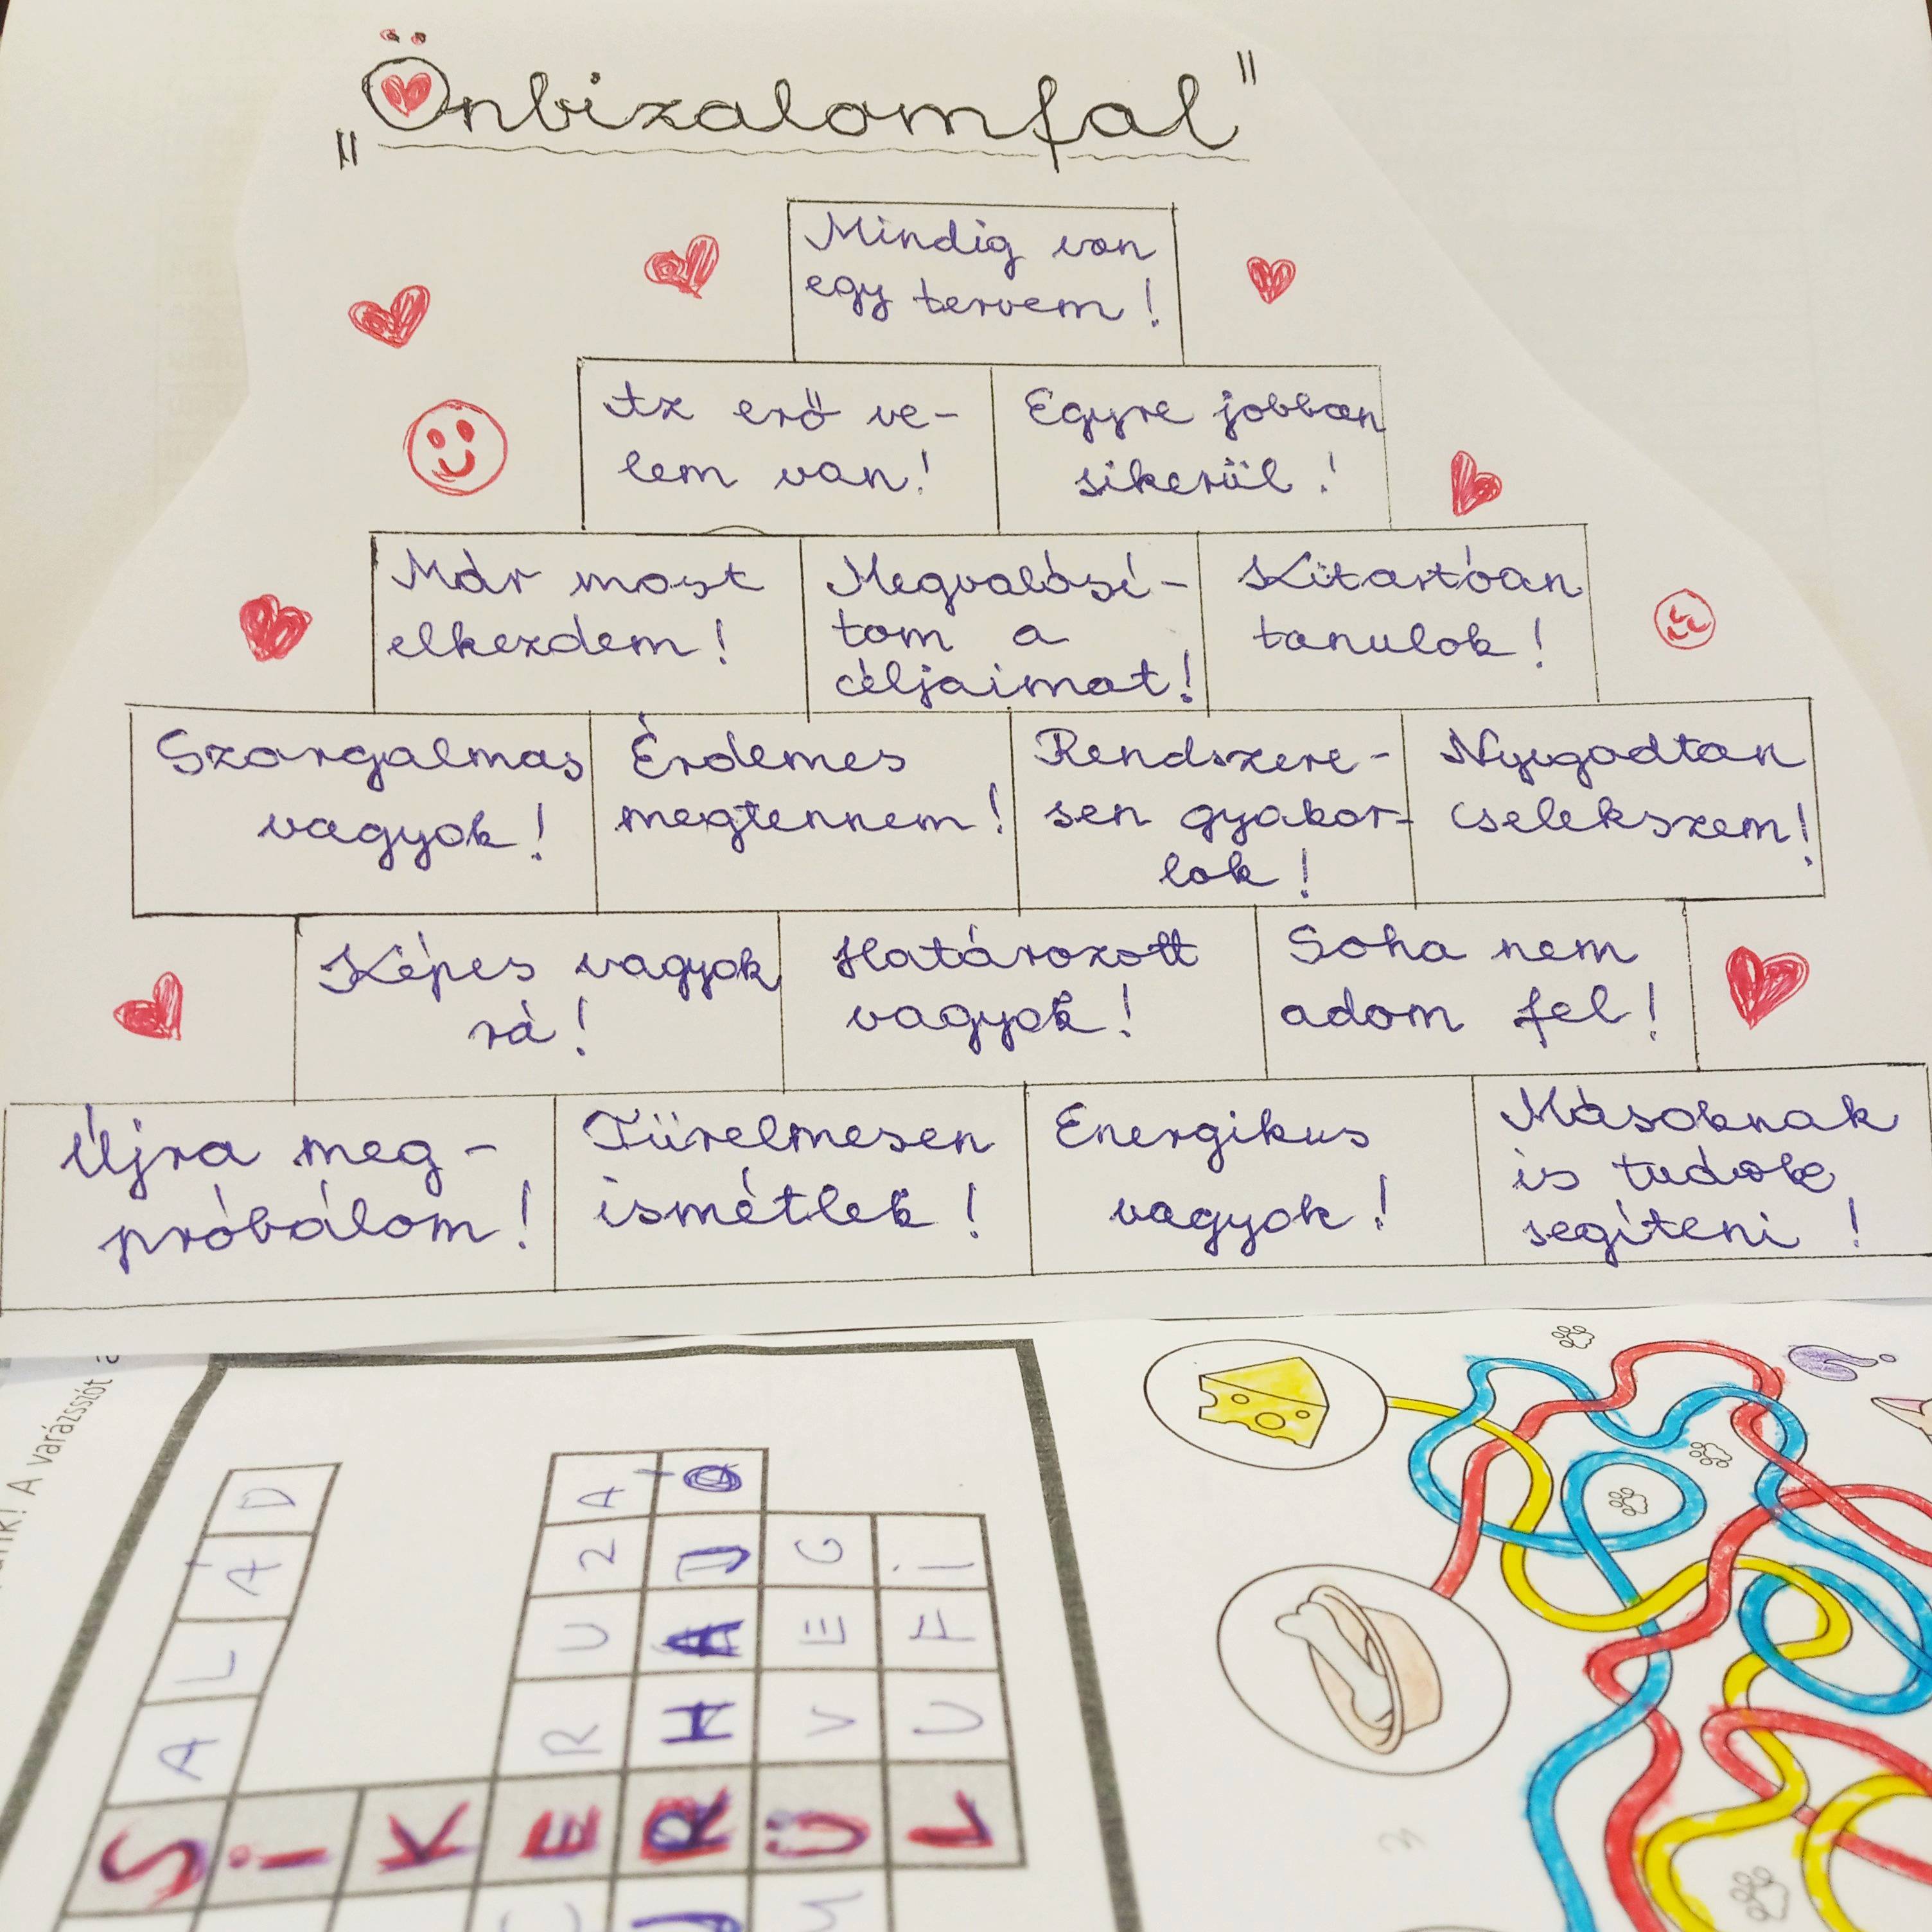 „Önbizalomfal"
Mindig van
egy tervem!
Az erő ve-
lem van!
Egyre jobban
sikerül!
Már most
elkezdem!
Megvalósí-
tom a
céljaimat!
Kitartóan
tanulok!
Szorgalmas
vagyok!
Érdemes
megtennem!
Rendszere-
sen gyakor-
lok!
Nyugodtan
cselekszem!
Képes vagyok
rá!
Határozott
vagyok!
Soha nem
adom fel!
Újra meg-
próbálom!
Türelmesen
ismétlek!
Energikus
vagyok!
Másoknak
is tudok
segíteni!
A varázsszót
SALÁD
SIKERÜL